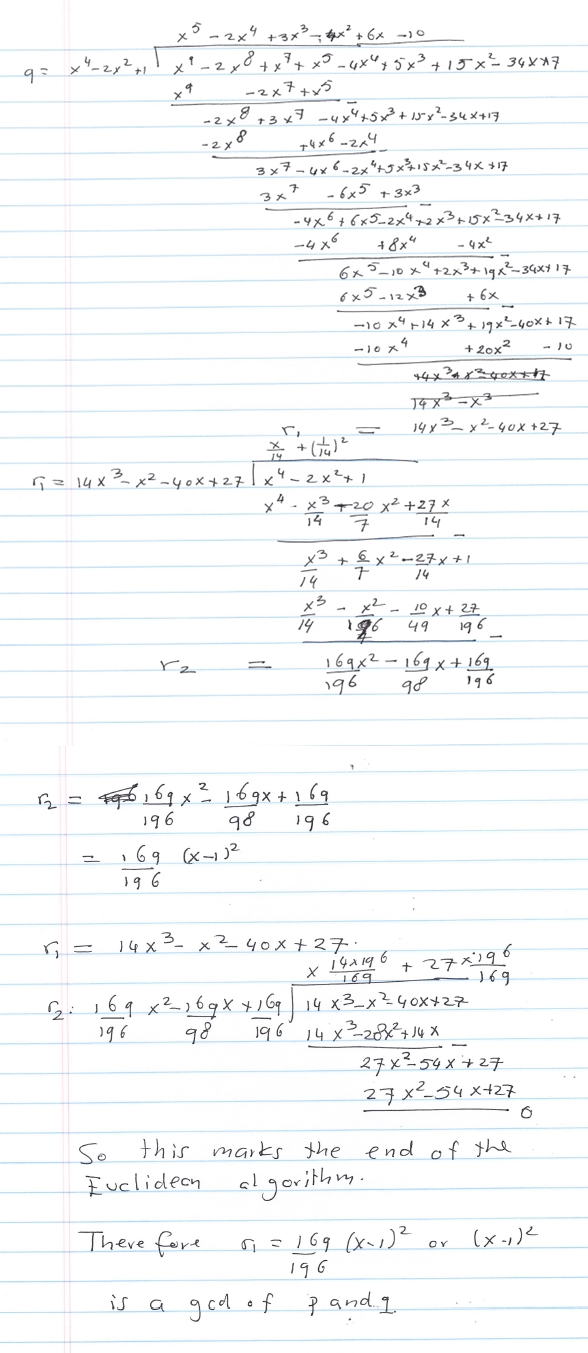 x⁵ - 2x⁴ + 3x³ - 4x² + 6x - 10
q = x⁴ - 2x² + 1 | x⁹ - 2x⁸ + x⁷ + x⁵ - 4x⁴ + 5x³ + 15x² - 34x + 17
x⁹ - 2x⁷ + x⁵ -
-2x⁸ + 3x⁷ - 4x⁴ + 5x³ + 15x² - 34x + 17
-2x⁸ + 4x⁶ - 2x⁴ -
3x⁷ - 4x⁶ - 2x⁴ + 5x³ + 15x² - 34x + 17
3x⁷ - 6x⁵ + 3x³ -
-4x⁶ + 6x⁵ - 2x⁴ + 2x³ + 15x² - 34x + 17
-4x⁶ + 8x⁴ - 4x² -
6x⁵ - 10x⁴ + 2x³ + 19x² - 34x + 17
6x⁵ - 12x³ + 6x -
-10x⁴ + 14x³ + 19x² - 40x + 17
-10x⁴ + 20x² - 10
14x³ - x³
r₁ = 14x³ - x² - 40x + 27
x/14 + (1/14)²
r₁ = 14x³ - x² - 40x + 27 | x⁴ - 2x² + 1
x⁴ - x³/14 - 20/7 x² + 27x/14 -
x³/14 + 6/7 x² - 27x/14 + 1
x³/14 - x²/196 - 10/49 x + 27/196 -
r₂ = 169x²/196 - 169x/98 + 169/196
r₂ = 169/196 x² - 169x/98 + 169/196
= 169/196 (x-1)²
r₁ = 14x³ - x² - 40x + 27.
x 14x196/169 + 27x196/169
r₂: 169/196 x² - 169x/98 + 169/196 | 14x³ - x² - 40x + 27
14x³ - 28x² + 14x -
27x² - 54x + 27
27x² - 54x + 27
0
So this marks the end of the
Euclidean algorithm.
Therefore r₁ = 169/196 (x-1)² or (x-1)²
is a gcd of p and q.